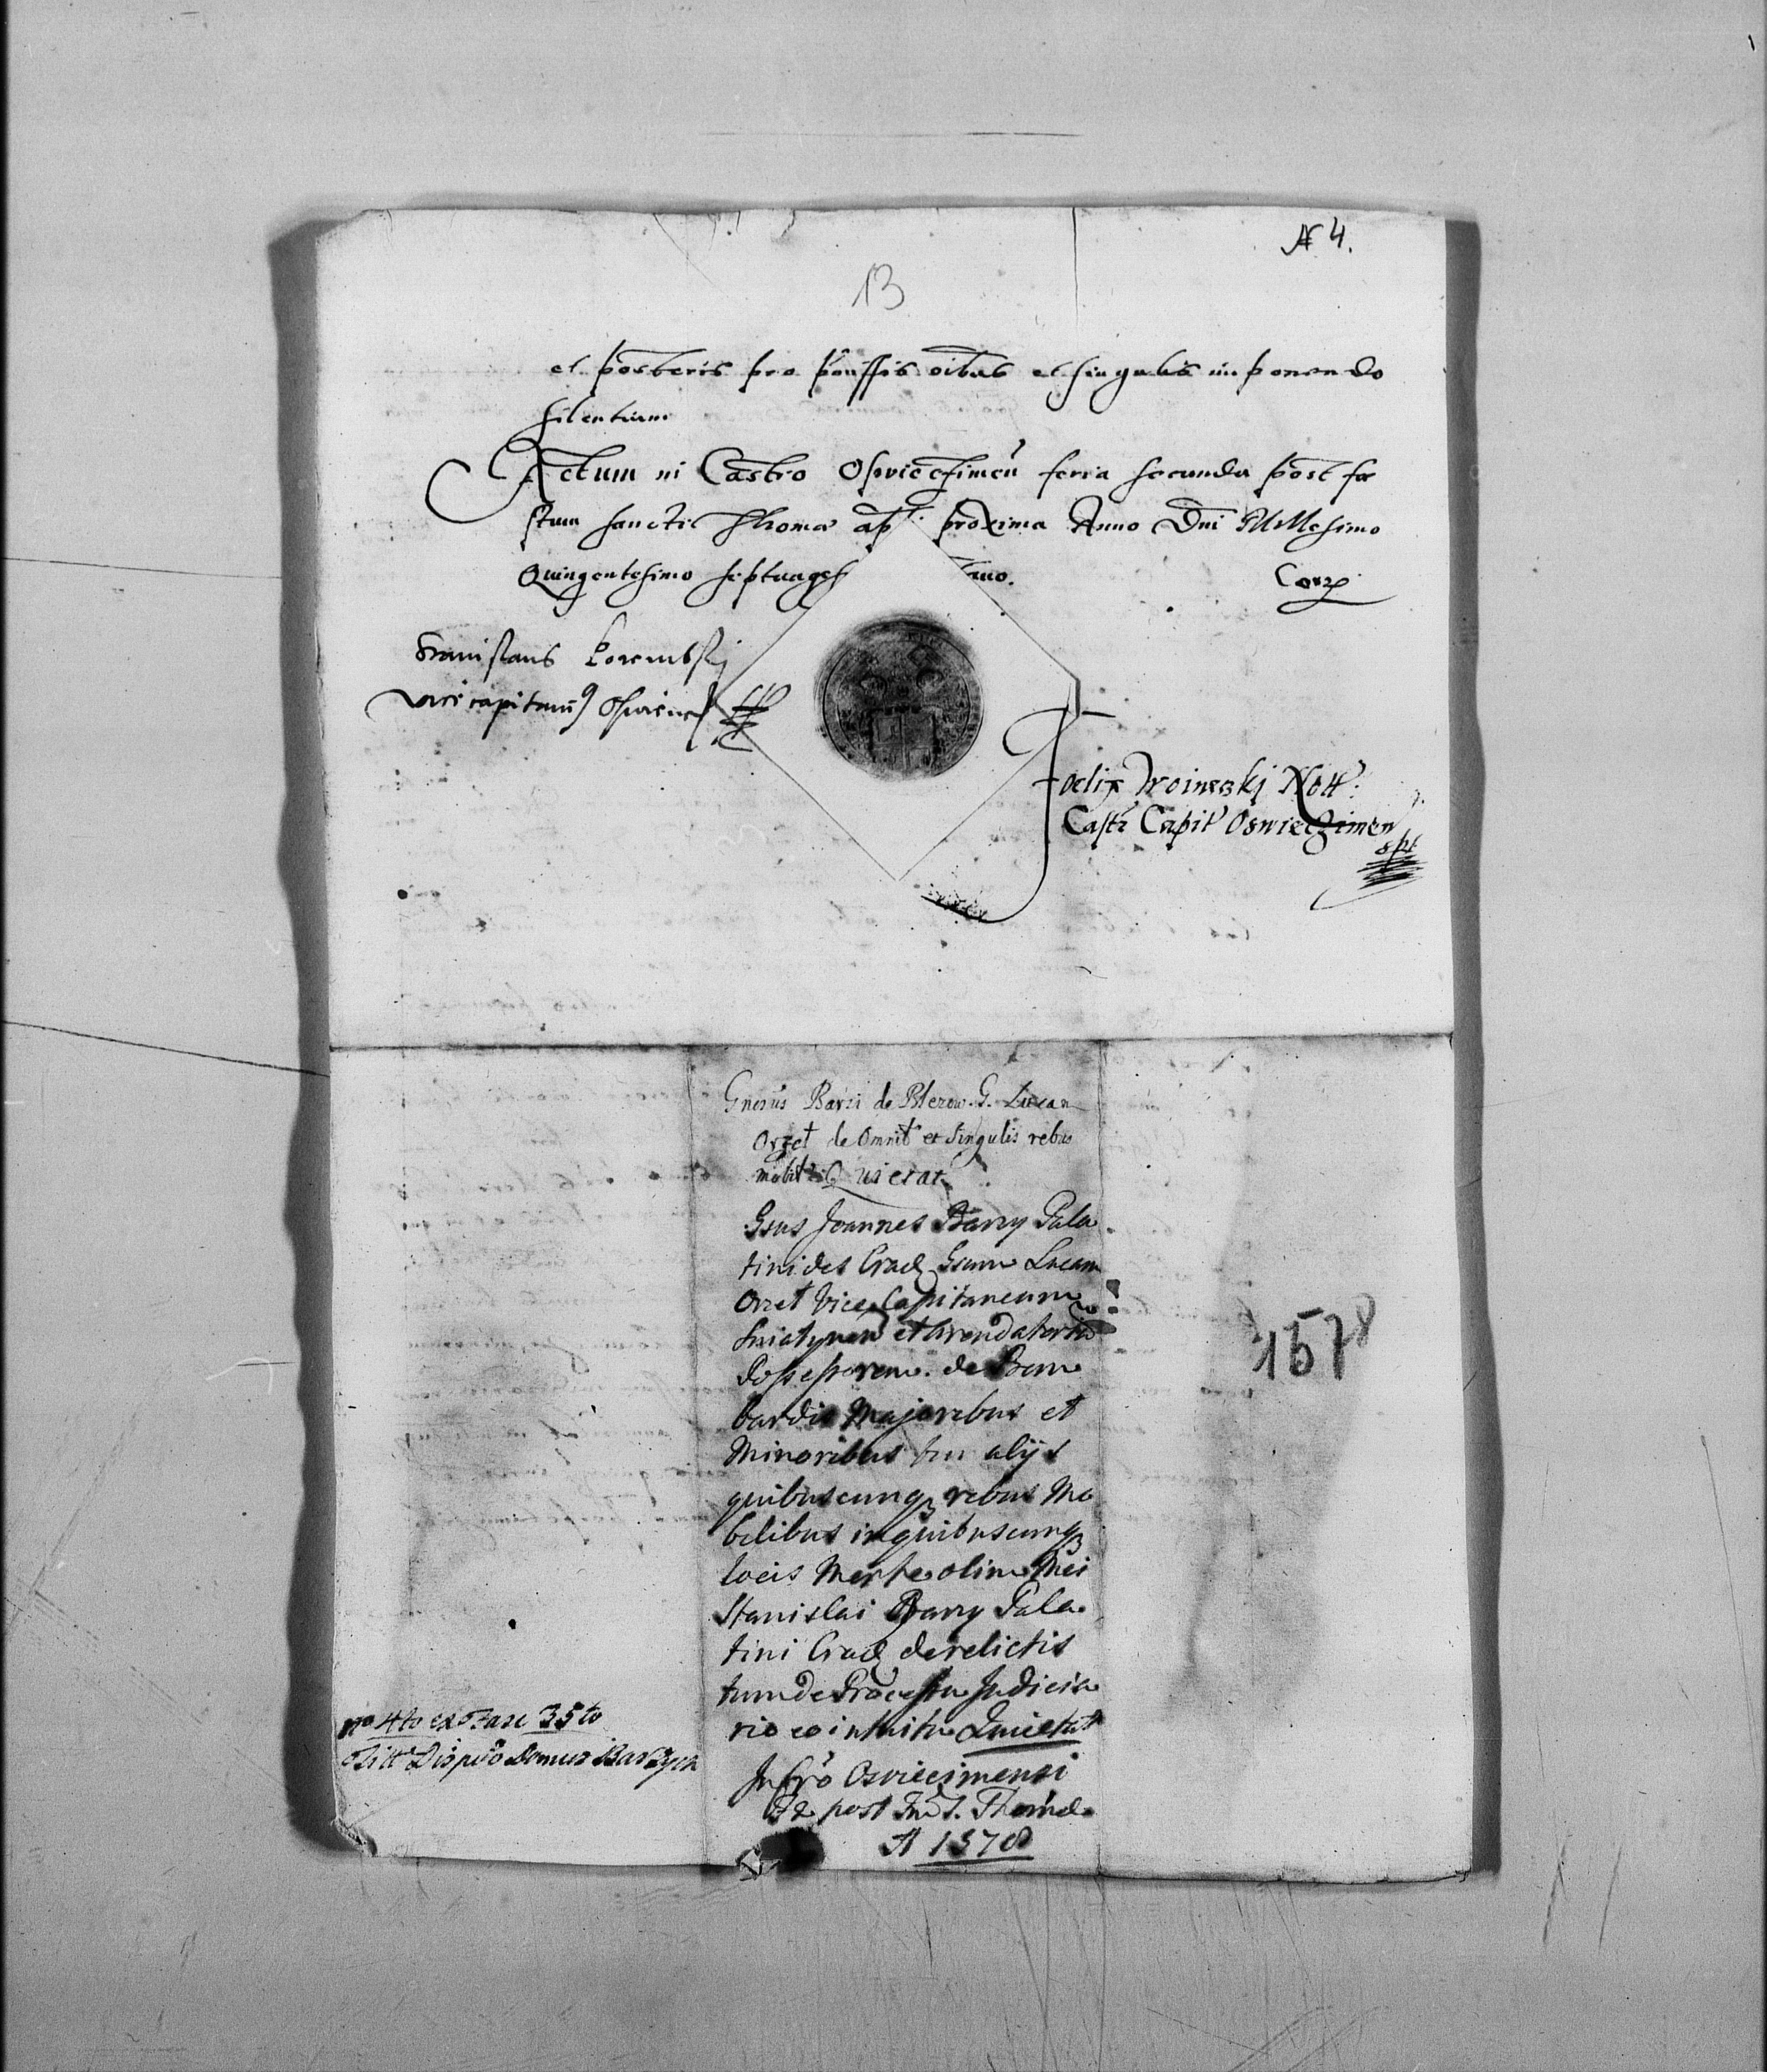 № 4.
13
et posteris pro p̃missis oĩbus et singulis imponendo
silentium
Actum in Castro Osviecĩmeñ feria secunda post fe
stum sancti Thomæ apˡⁱ proxima Anno Dñi Millesimo
Quingentesimo septuages auo. Corz
Stanislaus Porembskj
vicecapitane9 Osviecz
Foelix Woinerskj Nott:
Castr Capit Oswieczimen
Gnosus Barzi de Blozow. G. Lucam
Orzet de Omnib et Singulis rebus
mobil: Quietat
Gsus Joannes Barzy Pala
tinides Crac Gsum Lucam
Orzet Vice Capitaneum
Sniatynen et Arendatorium
Possessorem. de Bom
bardis Majoribus et
Minoribus tum alijs
quibuscunqꝫ rebus Mo
bilibus in quibuscunqꝫ
locis Morte olim Mci
Stanislai Barzy Pala
tini Crac derelictis
tum de Processu Judicia
rio eo intuitu Quietat
In Cro Osviecimensi
F2 post Fm S. Thomæ
A 1578
1578
No 4to ex Fasc 35to
Titt Domus Barzych